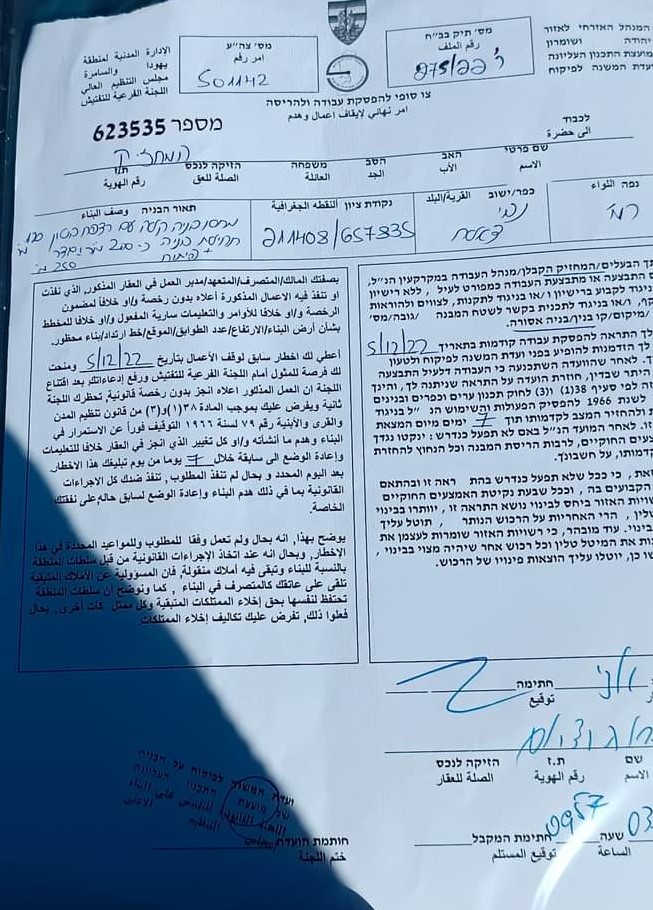 המנהל האזרחי לאזור
יהודה ושומרון
מועצת התכנון העליונה
ועדת המשנה לפיקוח
מס' תיק בב"ח
رقم الملف
ר' 275/22
מס' צה"ע
امر رقم
501142
الإدارة المدنية لمنطقة
يهودا والسامرة
مجلس التنظيم العالي
اللجنة الفرعية للتفتيش
צו סופי להפסקת עבודה ולהריסה
امر نهائي لإيقاف اعمال وهدم
מספר 623535
לכבוד
الى حضرة
המחזיק
שם פרטי האב הסב משפחה הזיקה לנכס ת.ז
الاسم الأب الجد العائلة الصلة للعق رقم الهوية
נפה اللواء כפר/ישוב القرية/البلد נקודת ציון النقطه الجغرافية תאור הבניה وصف البناء
211408/657835
תך הבעלים/המחזיק הקבלן/מנהל העבודה במקרקעין הנ"ל,
ם התבצעה או מתבצעת העבודה כמפורט לעיל, ללא רישיון
ניגוד לקבוע ברישיון ו/או בניגוד לתקנות, לצווים ולהוראות
קף, ו/או בניגוד לתכנית בקשר לשטח המבנה /גובה/מס'
/מיקום/קו בנין/בניה אסורה.
לך התראה להפסקת עבודה קודמות בתאריך 5/12/22
לך הזדמנות להופיע בפני ועדת המשנה לפיקוח ולטעון
ך. לאחר שהוועדה השתכנעה כי העבודה דלעיל התבצעה
היתר שבדין, חוזרת הועדה על התראה שניתנה לך, והינך
זה לפי סעיף 38(1) ו(3) לחוק תכנון ערים וכפרים ובנינים
לשנת 1966 להפסיק הפעולות והשימוש הנ"ל בניגוד
ולהחזיר המצב לקדמותו תוך 7 ימים מיום המצאת
זו. לאחר המועד הנ"ל באם לא תפעל כנדרש: ינקטו נגדך
צעים החוקיים, לרבות הריסת המבנה וכל הנחוץ להחזרת
קדמותו, על חשבונך.
זאת, כי ככל שלא תפעל כנדרש בהתראה זו ובהתאם
הקבועים בה, וככל שבעת נקיטת האמצעים החוקיים
שויות האזור ביחס לבינוי נשוא התראה זו, יוותרו בבינוי
טלין, הרי האחריות על הרכוש הנותר, תוטל עליך
בינוי. עוד מובהר, כי רשויות האזור שומרות לעצמן את
נות את המיטלטלין וכל רכוש אחר שיהיה מצוי בבינוי,
שו כן, יוטלו עליך הוצאות פינויו של הרכוש.
بصفتك المالك/المتصرف/المتعهد/مدير العمل في العقار المذكور, الذي نفذت
او تنفذ فيه الاعمال المذكورة أعلاه بدون رخصة و/او خلافا لمضمون
الرخصة و/او خلافا للأوامر والتعليمات سارية المفعول و/او خلافا للمخطط
بشأن أرض البناء/الارتفاع/عدد الطوابق/الموقع/خط ارتداد/بناء محظور.
أعطي لك اخطار سابق لوقف الأعمال بتاريخ 5/12/22 ومنحت
لك فرصة للمثول أمام اللجنة الفرعية للتفتيش ورفع إدعاءاتك بعد اقتناع
اللجنة ان العمل المذكور اعلاه انجز بدون رخصة قانونية, تحظرك اللجنة
ثانية ويفرض عليك بموجب المادة ٣٨(١)و(٣) من قانون تنظيم المدن
والقرى والأبنية رقم ٧٩ لسنة ١٩٦٦ التوقيف فوراً عن الاستمرار في
البناء وهدم ما أنشأته و/او كل تغيير الذي انجز في العقار خلافا للتعليمات
وإعادة الوضع الى سابقة خلال 7 يوما من يوم تبليغك هذا الاخطار.
بعد اليوم المحدد و بحال لم تنفذ المطلوب, تنفذ ضدك كل الاجراءات
القانونية بما في ذلك هدم البناء وإعادة الوضع لسابق حاله, على نفقتك
الخاصة.
يوضح بهذا, انه بحال ولم تعمل وفقا للمطلوب وللمواعيد المحددة في هذا
الإخطار, وبحال انه عند اتخاذ الإجراءات القانونية من قبل سلطات المنطقة
بالنسبة للبناء وتبقى فيه أملاك منقولة, فان المسؤولية عن الأملاك المتبقية
تلقى على عاتقك كالمتصرف في البناء, كما ونوضح ان سلطات المنطقة
تحتفظ لنفسها بحق إخلاء الممتلكات المتبقية وكل ممتلكات أخرى, بحال
فعلوا ذلك, تفرض عليك تكاليف إخلاء الممتلكات
חתימה
توقيع
שם ת.ז הזיקה לנכס
الاسم رقم الهوية الصلة للعقار
שעה 0957 חתימת המקבל
الساعة توقيع المستلم
חותמת הועדה
ختم اللجنة
ועדת המשנה לפיקוח על הבניה
של מועצת התכנון העליונה